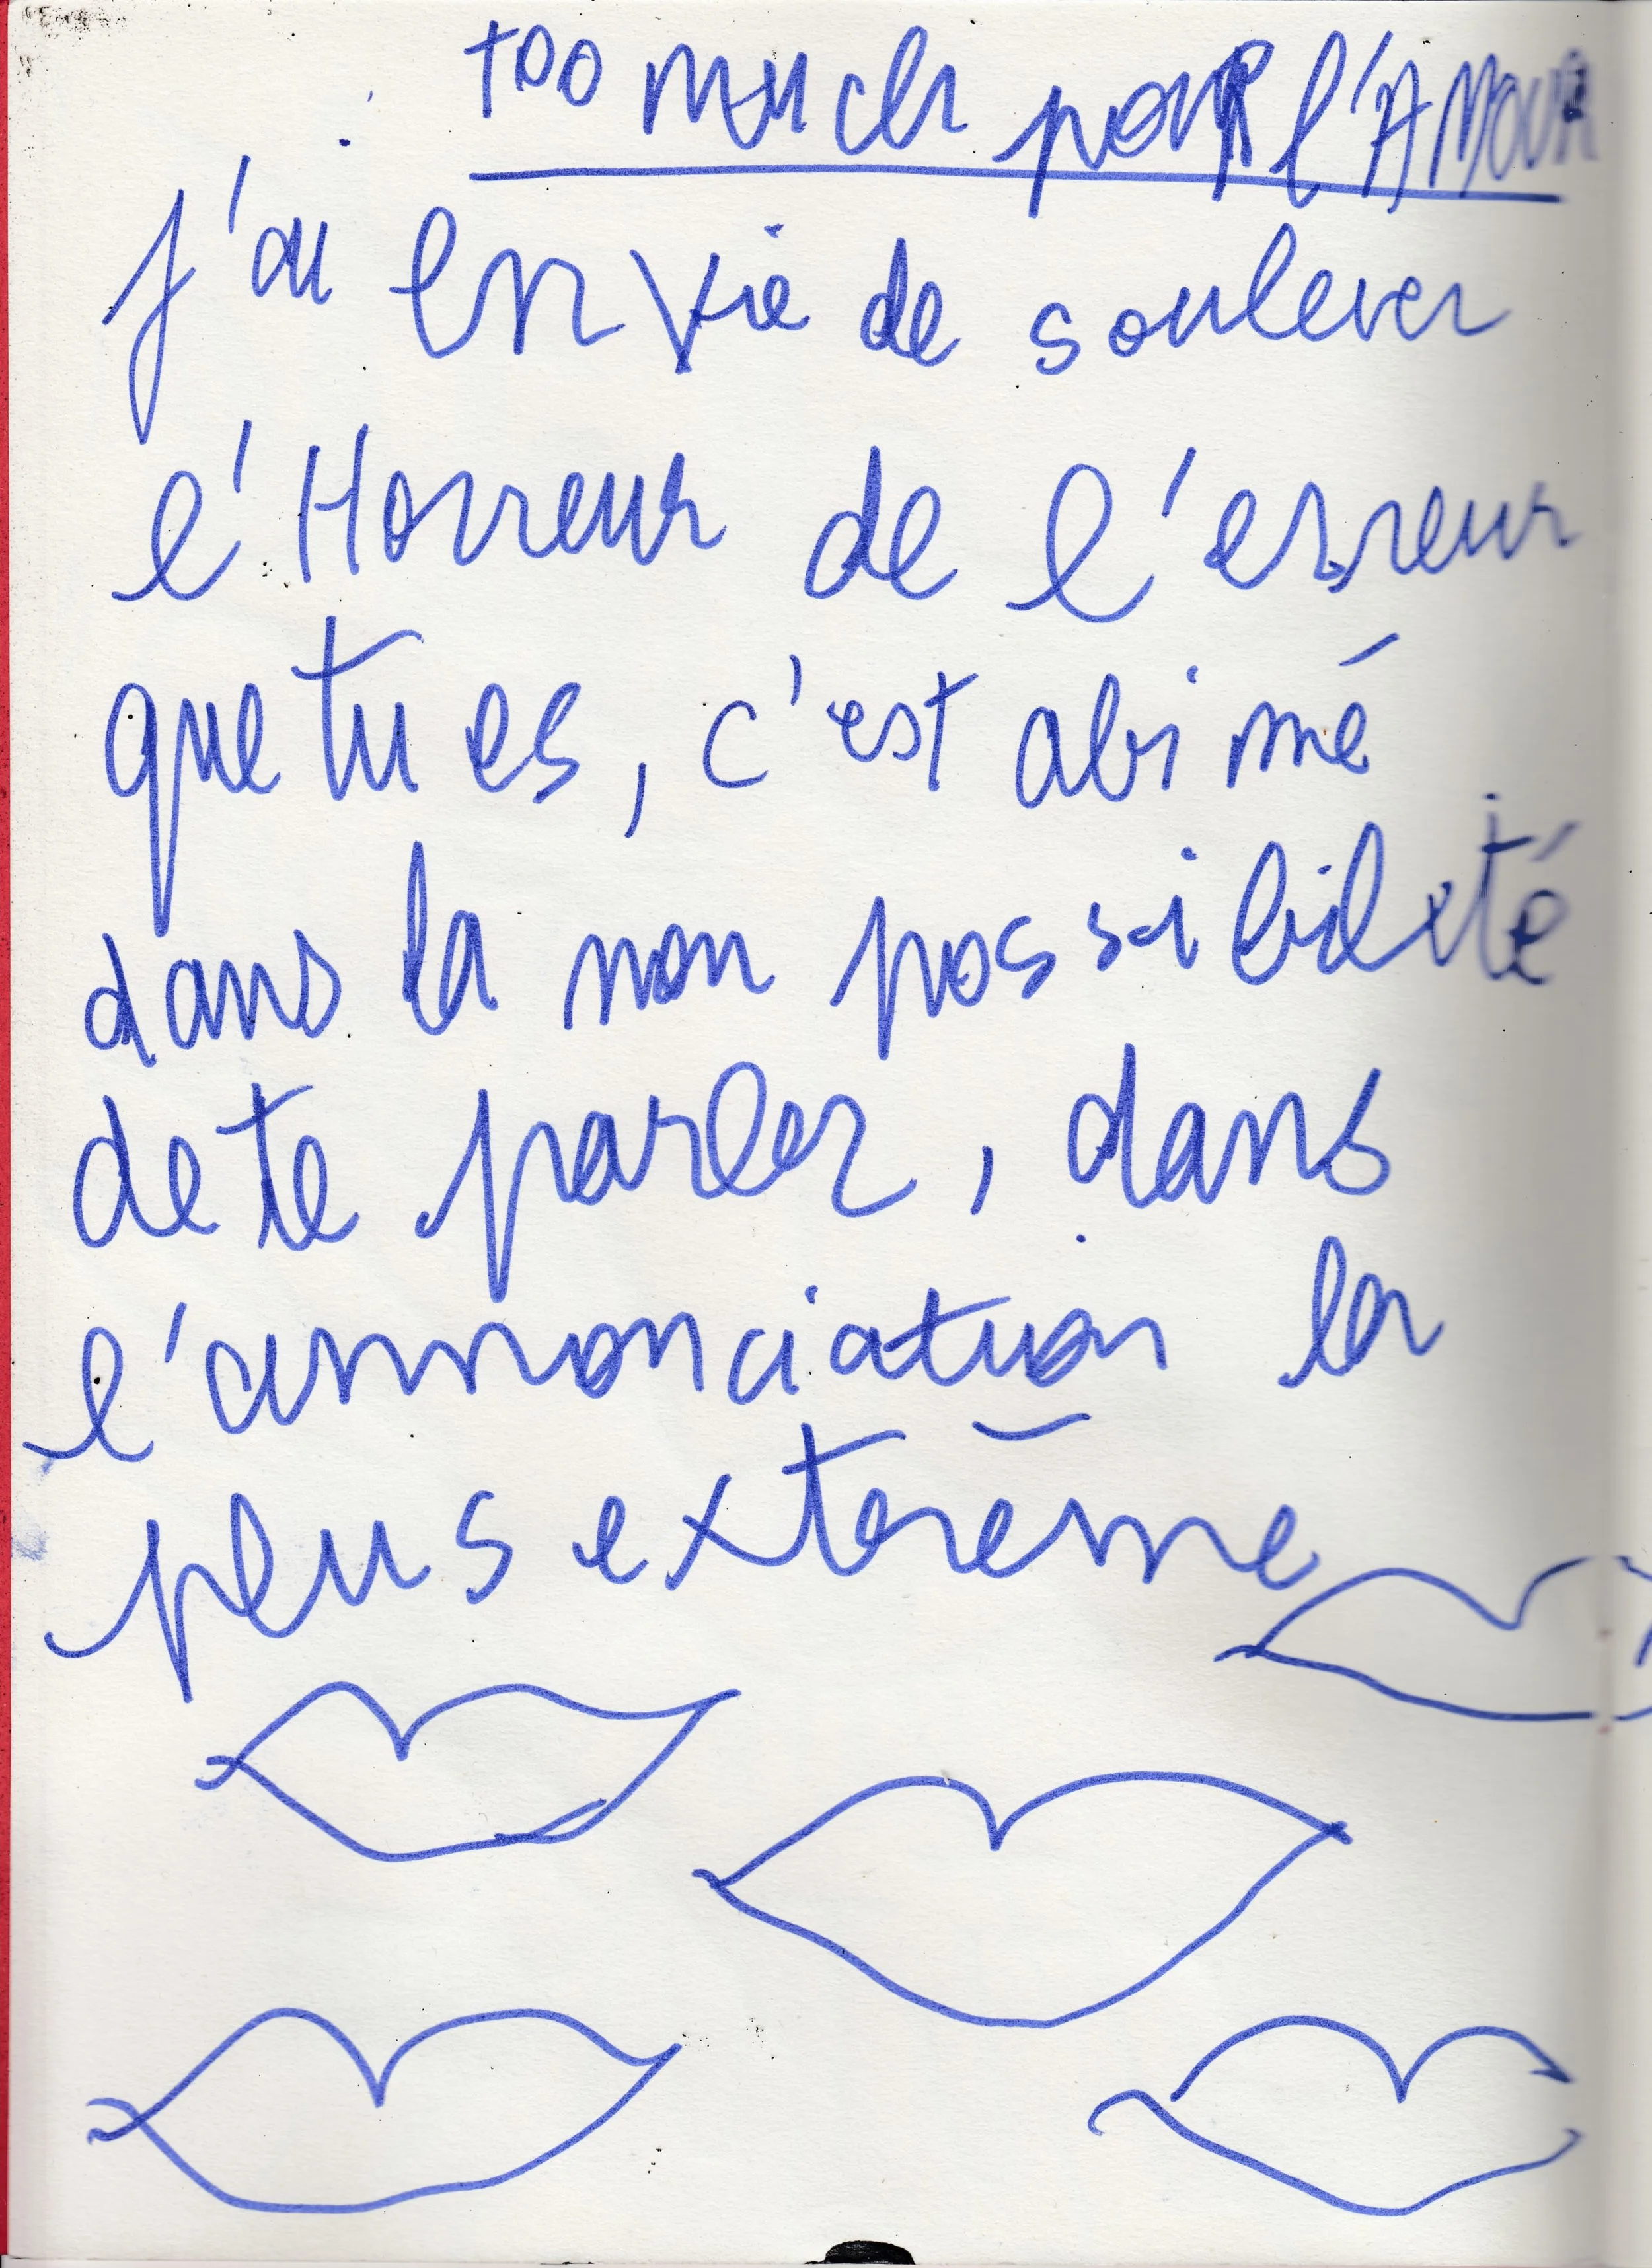 too much pouR l'AMOUR
j'ai envie de soulever
l'Horreur de l'erreur
que tu es, c'est abimé
dans la non possibilité
de te parler, dans
l'annonciation la
plus extrême